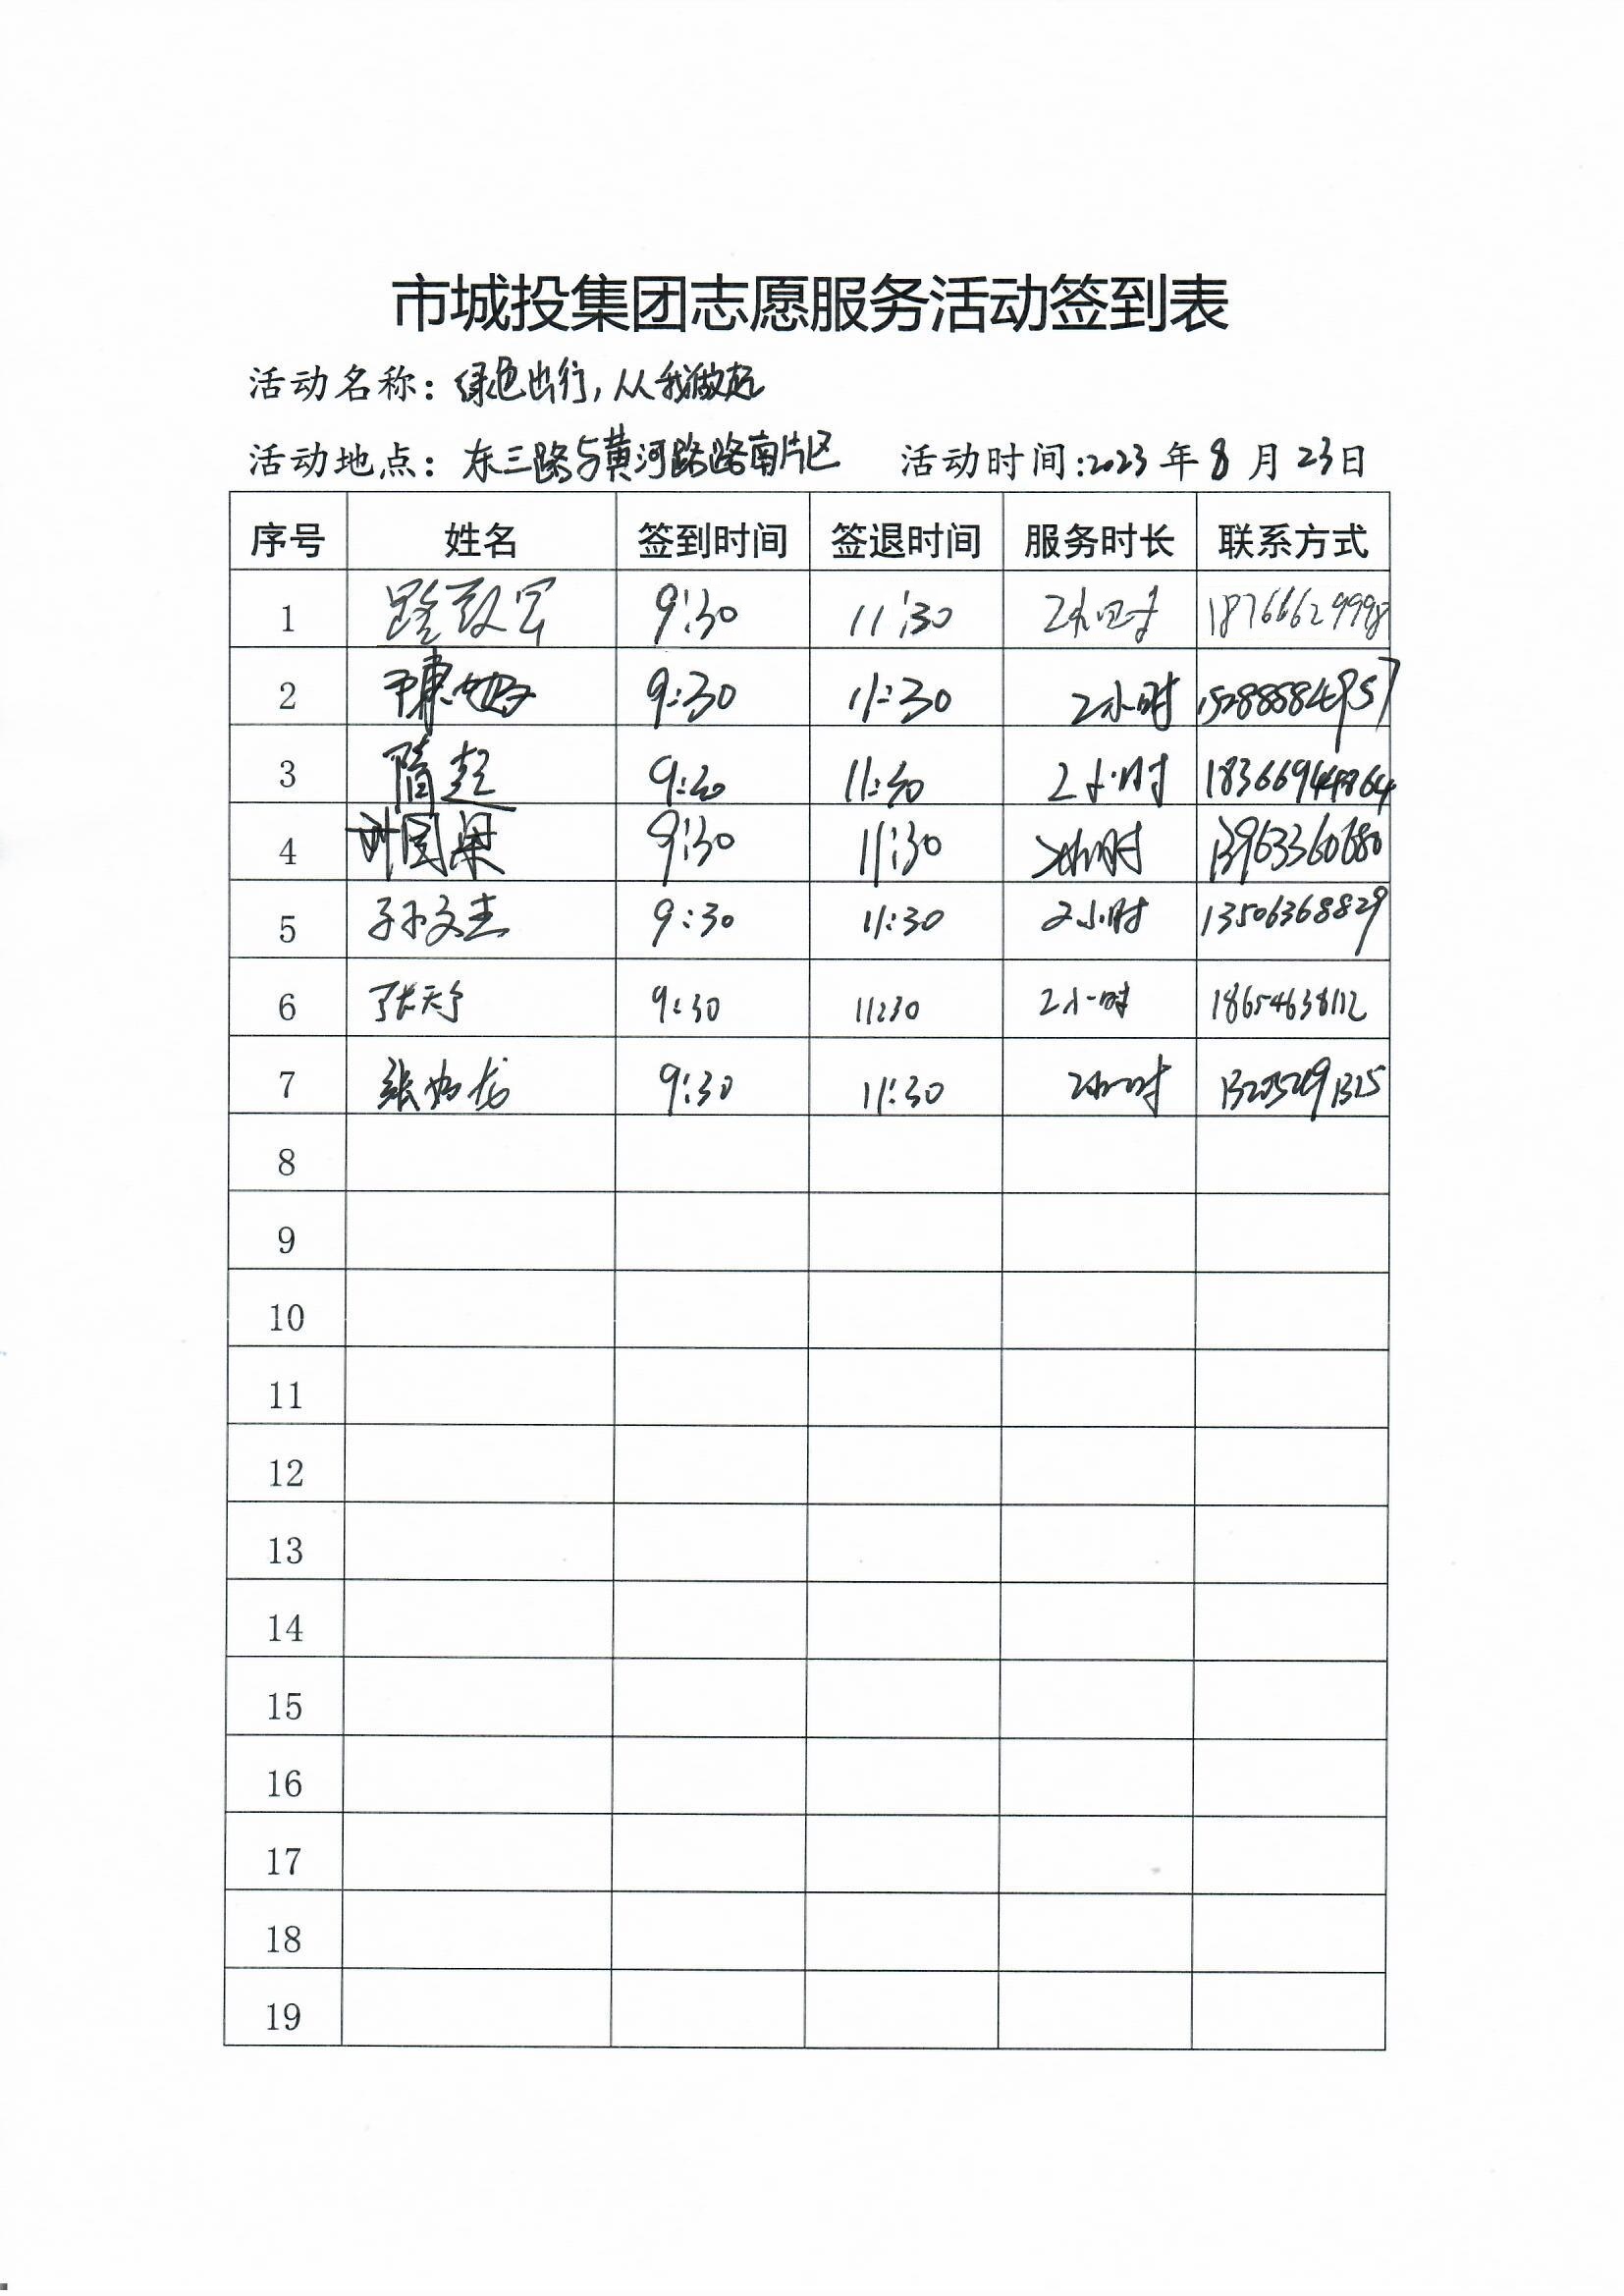 市城投集团志愿服务活动签到表
活动名称：绿色出行，从我做起
活动地点：东三路与黄河路路南片区 活动时间：2023年8月23日
序号 姓名 签到时间 签退时间 服务时长 联系方式
1 9:30 11:30 2小时 18766629998
2 9:30 11:30 2小时 15288884957
3 隋超 9:30 11:30 2小时
4 9:30 11:30 2小时 13963360680
5 孙文杰 9:30 11:30 2小时 13506368829
6 张天宁 9:30 11:30 2小时 18654638112
7 9:30 11:30 2小时
8
9
10
11
12
13
14
15
16
17
18
19